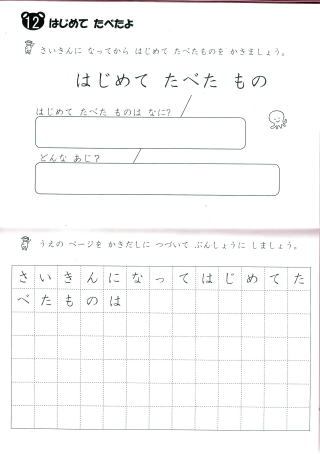 12 はじめて たべたよ
さいきんに なってから はじめて たべたものを かきましょう。
はじめて たべた もの
はじめて たべた ものは なに?
どんな あじ?
うえの ページを かきだしに つづいて ぶんしょうに しましょう。
さいきんになってはじめてた
べたものは